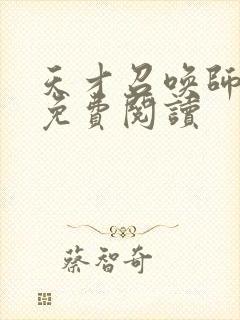 天才召喚師
免費閱讀
蔡智奇